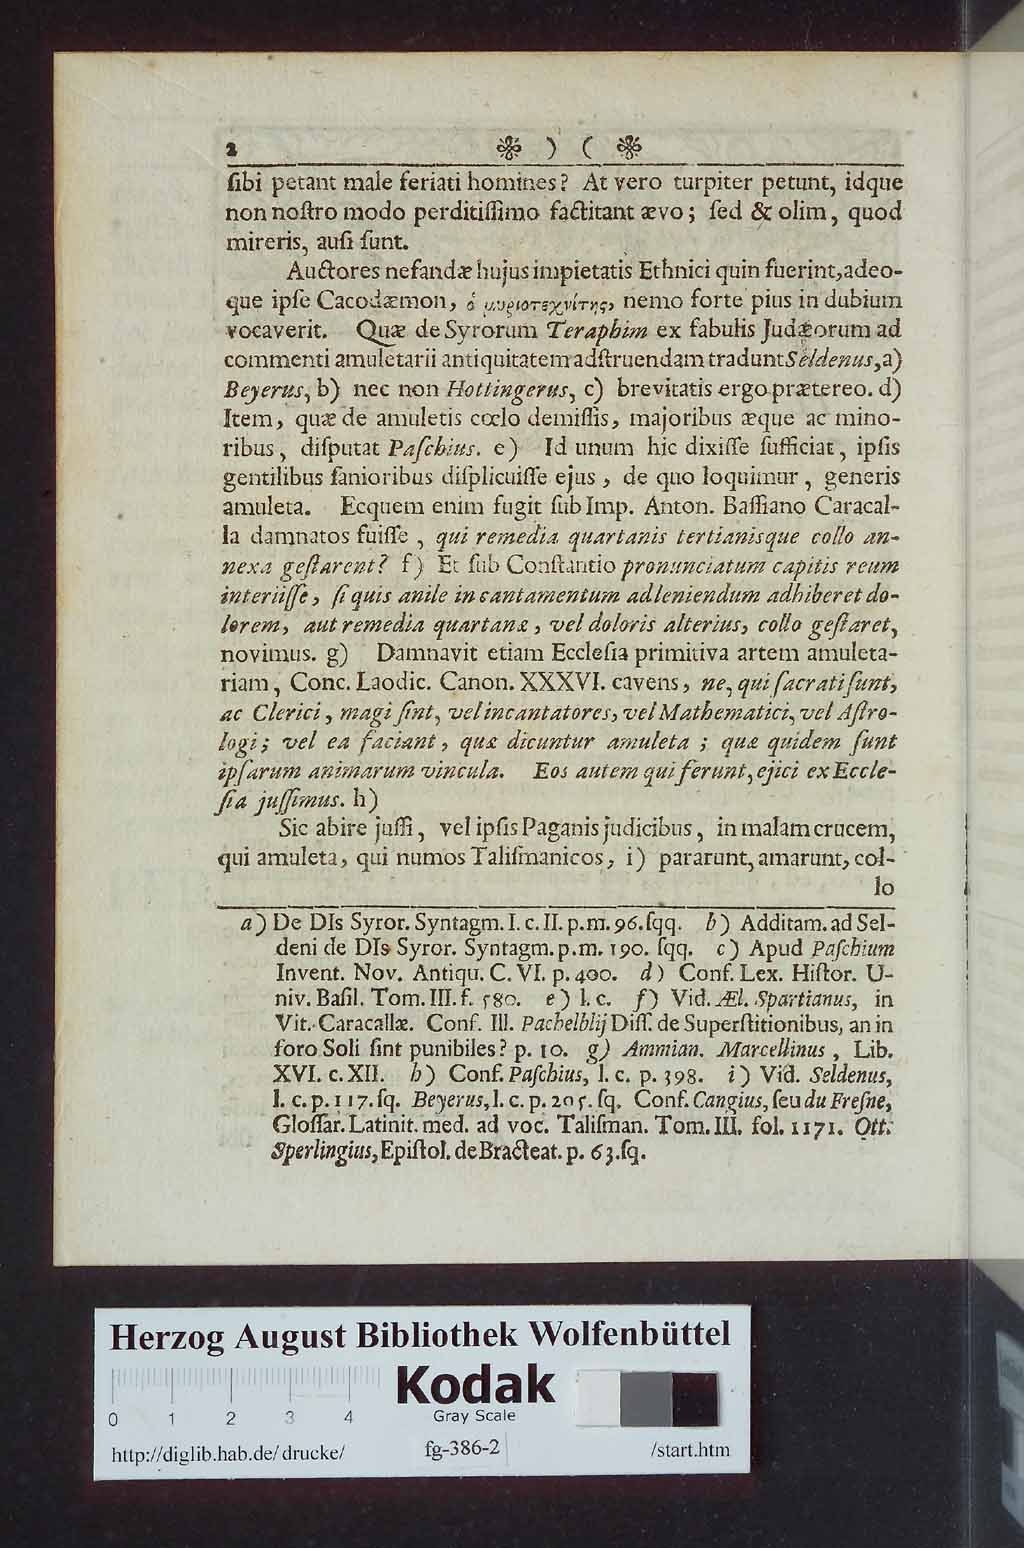 2 ❀ ) ( ❀
ſibi petant male feriati homines? At vero turpiter petunt, idque
non noſtro modo perditiſſimo factitant ævo; ſed & olim, quod
mireris, auſi ſunt.
Auctores nefandæ hujus impietatis Ethnici quin fuerint, adeo-
que ipſe Cacodæmon, ὁ μυριοτεχνίτης, nemo forte pius in dubium
vocaverit. Quæ de Syrorum Teraphim ex fabulis Judæorum ad
commenti amuletarii antiquitatem adſtruendam tradunt Seldenus, a)
Beyerus, b) nec non Hottingerus, c) brevitatis ergo prætereo. d)
Item, quæ de amuletis cœlo demiſſis, majoribus æque ac mino-
ribus, diſputat Paſchius. e) Id unum hic dixiſſe ſufficiat, ipſis
gentilibus ſanioribus diſplicuiſſe ejus, de quo loquimur, generis
amuleta. Ecquem enim fugit ſub Imp. Anton. Baſſiano Caracal-
la damnatos fuiſſe, qui remedia quartanis tertianisque collo an-
nexa geſtarent? f) Et ſub Conſtantio pronunciatum capitis reum
interiiſſe, ſi quis anile incantamentum ad leniendum adhiberet do-
lorem, aut remedia quartanæ, vel doloris alterius, collo geſtaret,
novimus. g) Damnavit etiam Eccleſia primitiva artem amuleta-
riam, Conc. Laodic. Canon. XXXVI. cavens, ne, qui ſacrati ſunt,
ac Clerici, magi ſint, vel incantatores, vel Mathematici, vel Aſtro-
logi; vel ea faciant, quæ dicuntur amuleta; quæ quidem ſunt
ipſarum animarum vincula. Eos autem qui ferunt, ejici ex Eccle-
ſia juſſimus. h)
Sic abire juſſi, vel ipſis Paganis judicibus, in malam crucem,
qui amuleta, qui numos Taliſmanicos, i) pararunt, amarunt, col-
lo
a) De DIs Syror. Syntagm. I. c. II. p. m. 96. ſqq. b) Additam. ad Sel-
deni de DIs Syror. Syntagm. p. m. 190. ſqq. c) Apud Paſchium
Invent. Nov. Antiqu. C. VI. p. 400. d) Conf. Lex. Hiſtor. U-
niv. Baſil. Tom. III. f. 580. e) l. c. f) Vid. Æl. Spartianus, in
Vit. Caracallæ. Conf. Ill. Pachelblij Diſſ. de Superſtitionibus, an in
foro Soli ſint punibiles? p. 10. g) Ammian. Marcellinus, Lib.
XVI. c. XII. h) Conf. Paſchius, l. c. p. 398. i) Vid. Seldenus,
l. c. p. 117. ſq. Beyerus, l. c. p. 205. ſq. Conf. Cangius, ſeu du Freſne,
Gloſſar. Latinit. med. ad voc. Taliſman. Tom. III. fol. 1171. Ott.
Sperlingius, Epiſtol. de Bracteat. p. 63. ſq.
Herzog August Bibliothek Wolfenbüttel
Kodak
0 1 2 3 4 Gray Scale
http://diglib.hab.de/drucke/ fg-386-2 /start.htm